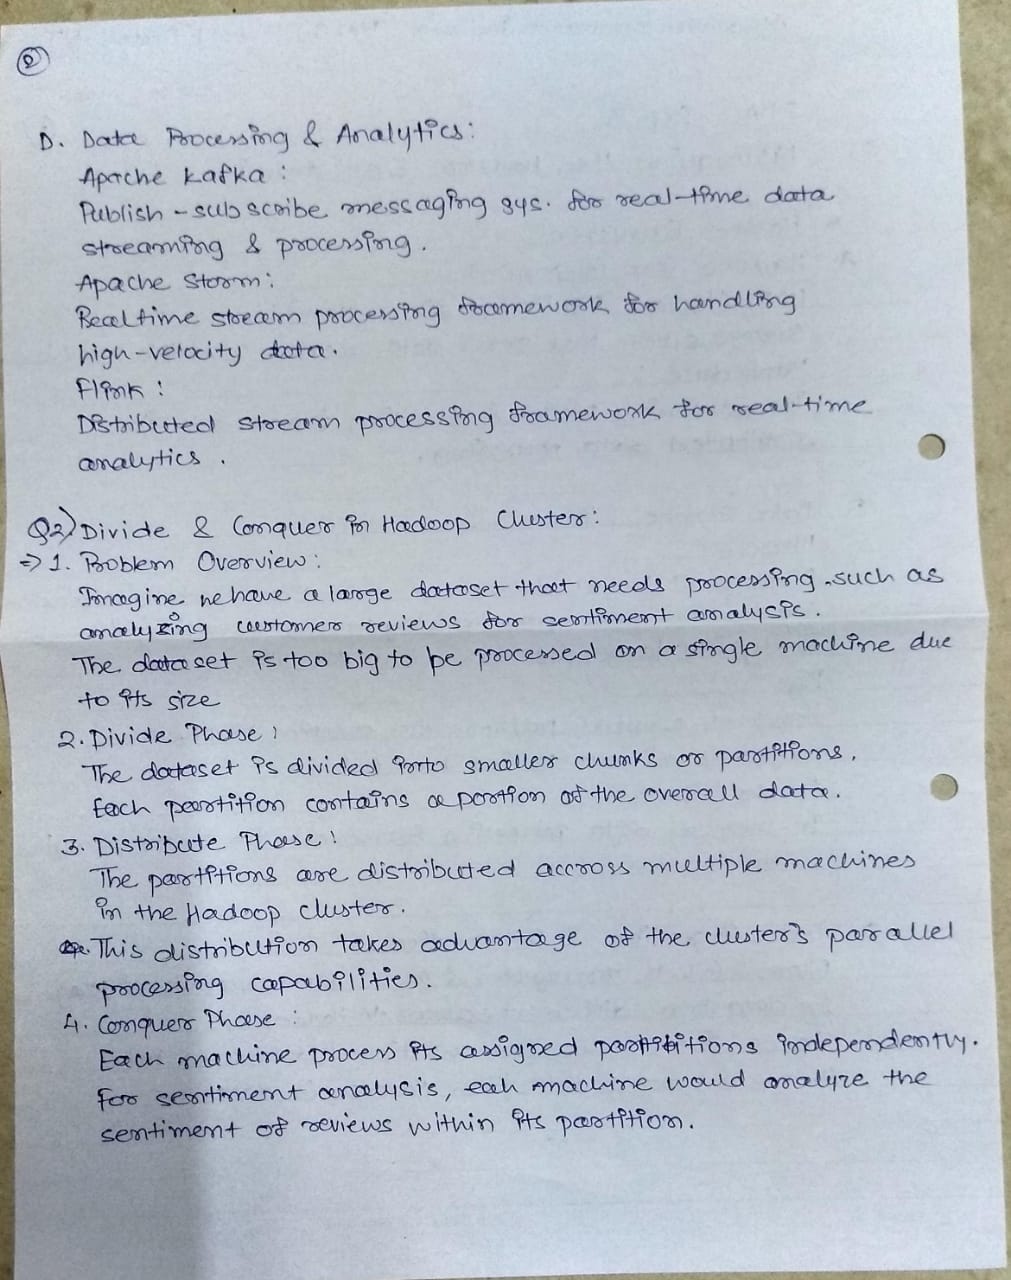 D. Data Processing & Analytics:
Apache Kafka:
Publish-subscribe messaging sys. for real-time data
streaming & processing.
Apache Storm:
Realtime stream processing framework for handling
high-velocity data.
Flink:
Distributed stream processing framework for real-time
analytics.
Q2) Divide & Conquer in Hadoop Cluster:
⇒ 1. Problem Overview:
Imagine we have a large dataset that needs processing, such as
analyzing customer reviews for sentiment analysis.
The dataset is too big to be processed on a single machine due
to its size
2. Divide Phase:
The dataset is divided into smaller chunks or partitions.
Each partition contains a portion of the overall data.
3. Distribute Phase:
The partitions are distributed accross multiple machines
in the Hadoop cluster.
This distribution takes advantage of the cluster's parallel
processing capabilities.
4. Conquer Phase:
Each machine process its assigned partitions independently.
For sentiment analysis, eah machine would analyze the
sentiment of reviews within its partition.